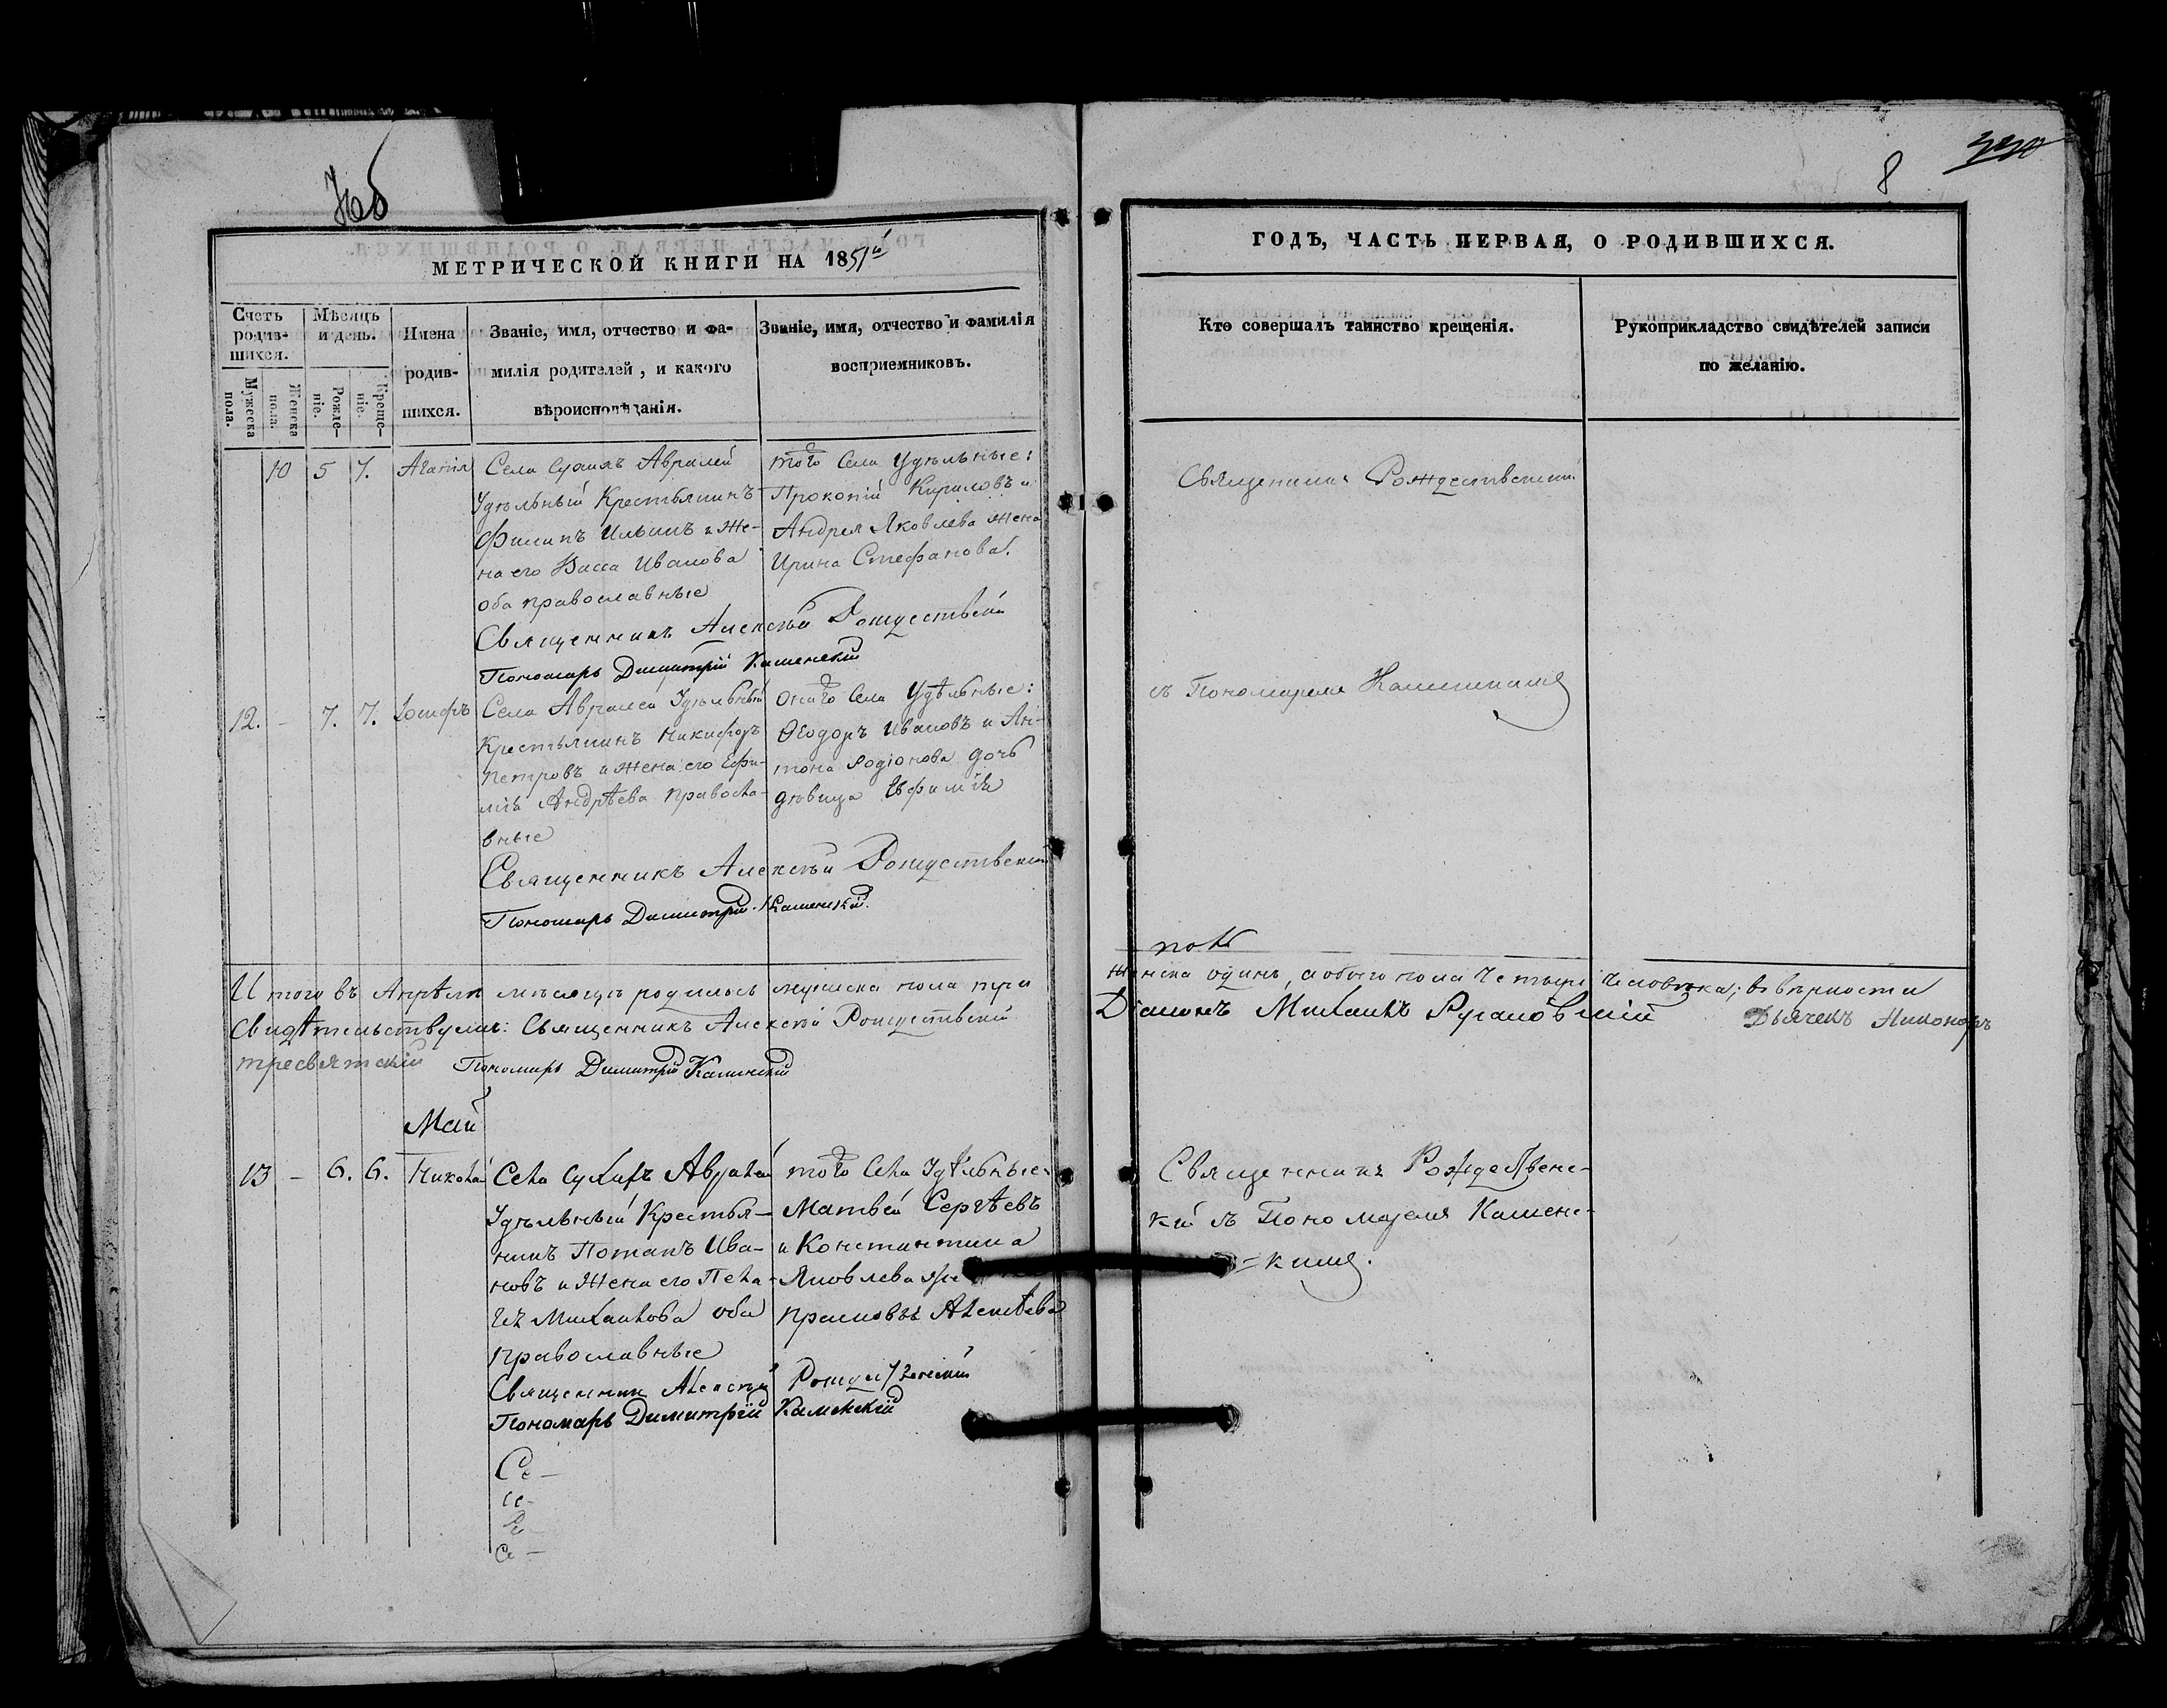 8
МЕТРИЧЕСКОЙ КНИГИ НА 1851й
ГОДЪ, ЧАСТЬ ПЕРВАЯ, О РОДИВШИХСЯ.
Счетъ родив-шихся.
Мужеска пола.
Женска пола.
Мѣсяцъ и день.
Рожде-ніе.
Креще-ніе.
Имена родив-шихся.
Званіе, имя, отчество и фа-
милія родителей, и какого
вѣроисповѣданія.
Званіе, имя, отчество и фамилія
воспріемниковъ.
Кто совершалъ таинство крещенія.
Рукоприкладство свидѣтелей записи
по желанію.
10 5 7. Агапія
Села Сухихъ Авралей
Удѣльный Крестьянинъ
Филипъ Ильинъ и Же-
на его Васса Иванова
оба православные
того Села Удѣльные:
Прокопій Кириловъ и
Андрея Яковлева жена
Ирина Стефанова.
Священникъ Рожественскій
съ Пономаремъ Каменскимъ
Священникъ Алексѣй Рождественскій
Пономарь Димитрій Каменскій
12. – 7. 7. Іосифъ
Села Авралей Удѣльный
Крестьянинъ Никифоръ
Петровъ и жена его Ефи-
мія Андрѣева Правосла-
вные
онаго Села Удѣльные:
Ѳеодоръ Ивановъ и Ан-
тона Родіонова дочь
дѣвица Ефимія
Священникъ Алексѣй Рождественскій
Пономарь Димитрій Каменскій.
Итого въ Апрѣлѣ мѣсяцѣ родилось мужеска пола три
женска одинъ, а обоего пола Четыре Человѣка; въ вѣрности
Свидѣтельствуемъ: Священникъ Алексѣй Рождественскій
Діаконъ Михаилъ Русановскій Дьячекъ Никоноръ
тресвятскій Пономарь Димитрій Каменскій
Май
13 – 6. 6. Николай
Села Сухихъ Авралей
Удѣльный Крестья-
нинъ Потапъ Ива-
новъ и Жена его Пела-
гея Михаилова оба
православные
того Села Удѣльные:
Матвей Сергѣевъ
и Константина
Яковлева
Алексѣева
Священникъ Рождествене-
кій съ Пономаремъ Каменс-
=кимъ.
Священникъ Алексѣй Рождественскій
Пономарь Димитрій Каменскій
Се-